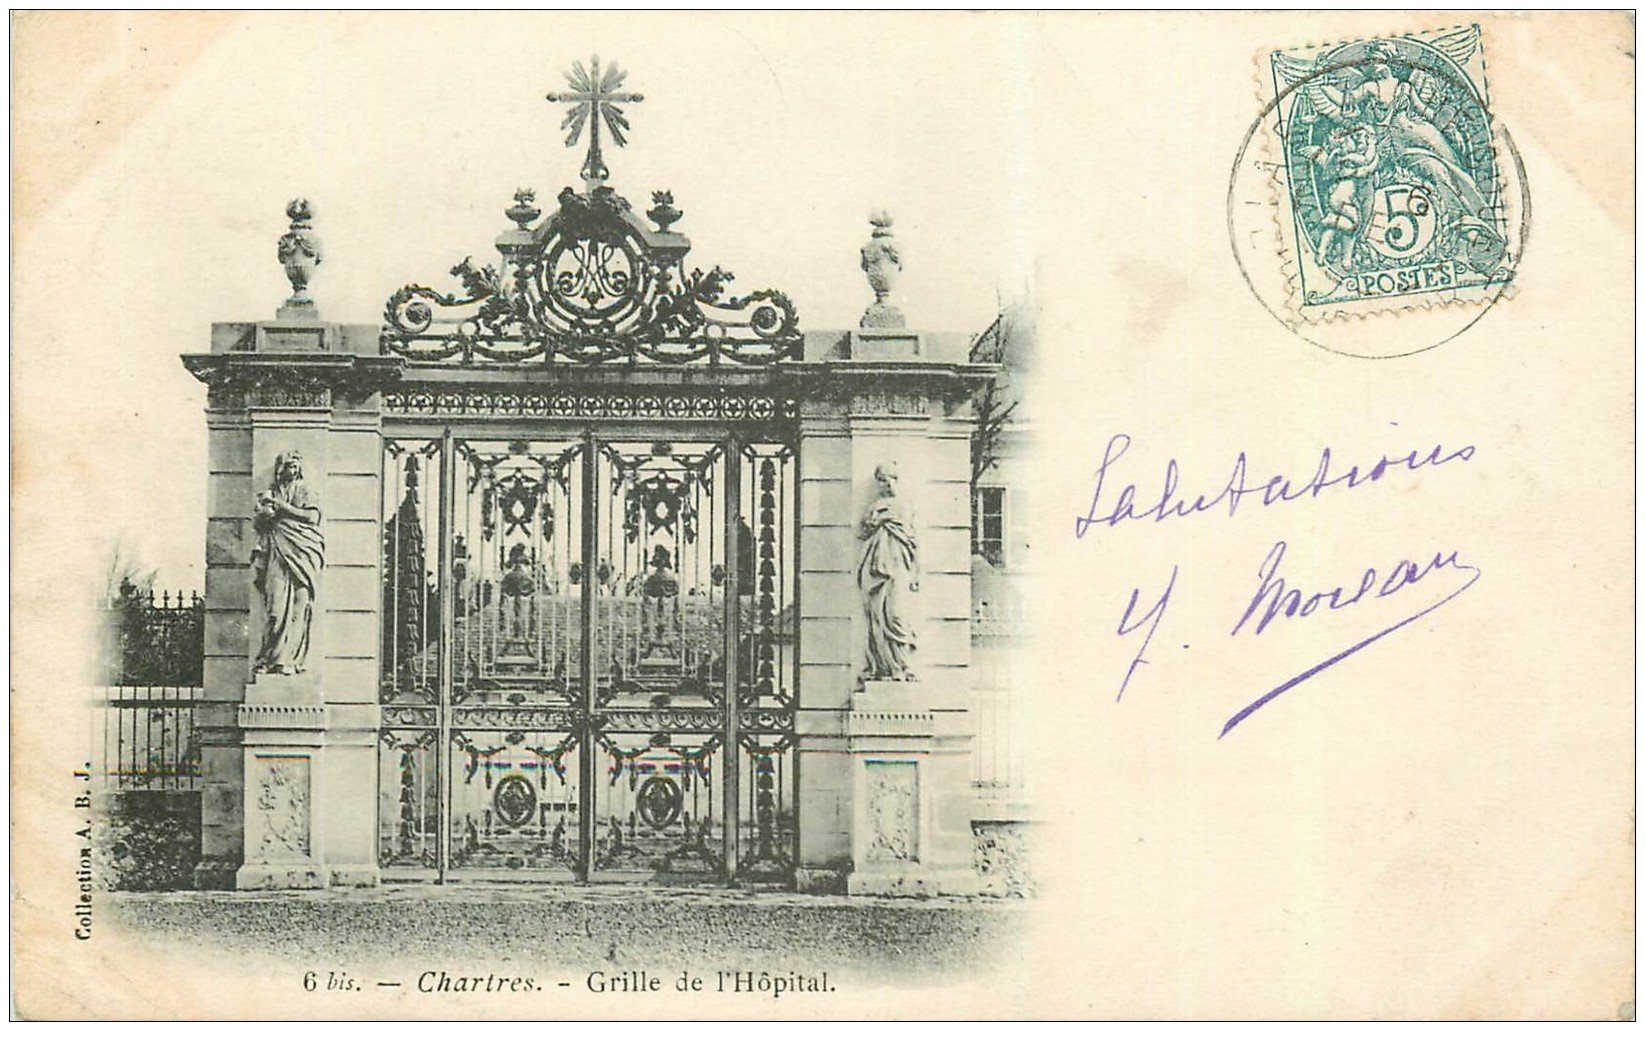 5
POSTES
Salutations
Y. Moreau
Collection A. B. J.
6 bis. — Chartres. - Grille de l'Hôpital.